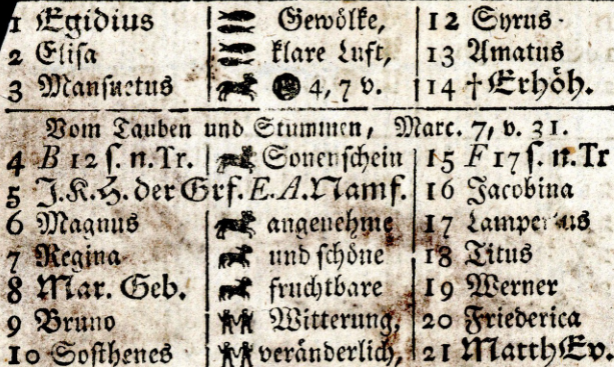 1 Egidius Gewölke, 12 Syrus
2 Elisa klare Luft, 13 Amatus
3 Mansuetus 4, 7 v. 14 † Erhöh.
Vom Tauben und Stummen, Marc. 7, v. 31.
4 B 12 s. n. Tr. Sonenschein 15 F 17 s. n. Tr
5 J. K. H. der Grf. E. A. Namf. 16 Jacobina
6 Magnus angenehme 17 Lampertus
7 Regina und schöne 18 Titus
8 Mar. Geb. fruchtbare 19 Werner
9 Bruno Witterung, 20 Friederica
10 Sosthenes veränderlich, 21 Matth Ev.